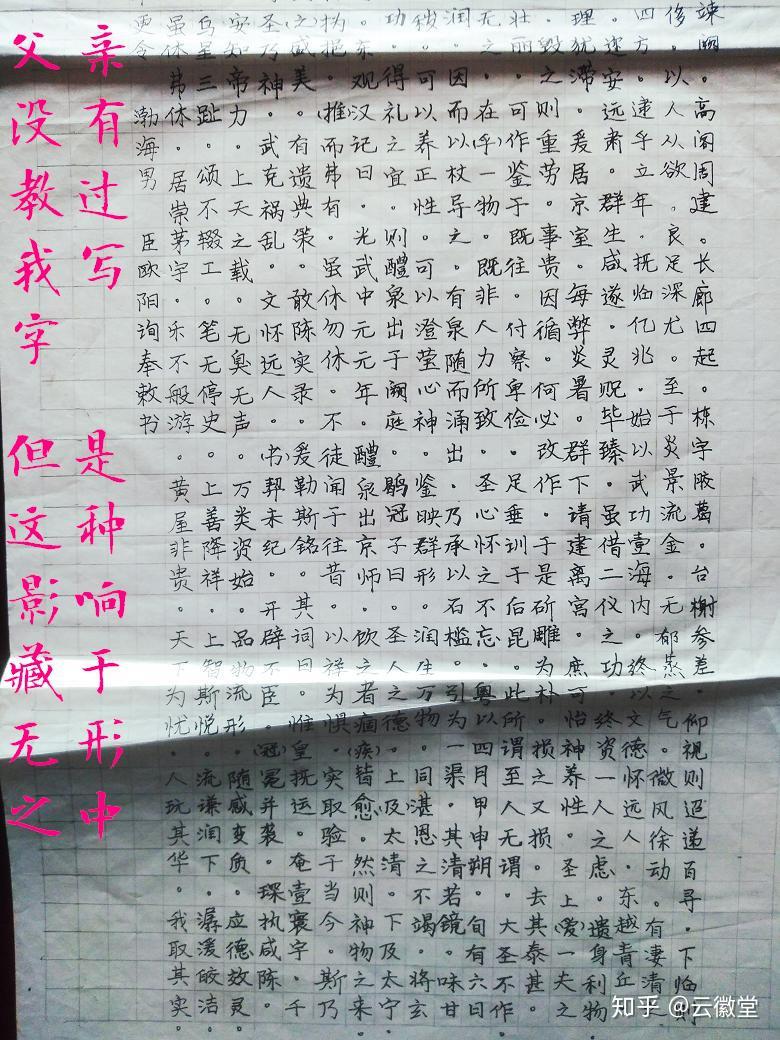 竦阙。高阁周建。长廊四起。栋宇胶葛。台榭参差。仰视则迢递百寻。下临则
侈。以人从欲。良足深尤。至于炎景流金。无郁蒸之气。微风徐动。有凄清
四方。逮乎立年。抚临亿兆。始以武功壹海内。终以文德怀远人。东越青丘
。迩安远肃。群生咸遂。灵贶毕臻。虽借二仪之功。终资一人之虑。遗身利物
理犹滞。爰居京室。每弊炎暑。群下请建离宫。庶可怡神养性。圣上(爱)一夫之
。毁之则重劳。事贵因循。何必改作。于是斫雕为朴。损之又损。去其泰甚。
壮丽。可作鉴于既往。付察卑俭。足垂训于后昆。此所谓至人无谓。大圣不作。
无之。在(乎)一物。既非人力所致。圣心怀之不忘。粤以四月甲申朔。旬有六日
润。因而以杖导之。有泉随而涌出。乃承以石槛。引为一渠。其清若镜。味甘
稍。可以养正性。可以澄莹心神。鉴映群形。润生万物。同湛恩之不竭。将玄
功。得礼之宜。则醴泉出于阙庭。鹖冠子曰。圣人之德。上及太清。下及太宁
。东观汉记曰。光武中元元年。醴泉出京师。饮之者痼(疾)皆愈。然则神物之来
㧑挹。(推)而弗有。虽休勿休。不徒闻于往昔。以祥为惧。实取验于当今。斯乃
(之)威美。有遗典策。敢陈实录。爰勒斯铭。其词曰。惟皇抚运。奄壹寰宇。千
圣乃神。武克祸乱。文怀远人。(书)契未纪。开辟不臣。(冠)冕并袭。琛执咸陈。
安知帝力。上天之载。无奥无声。万类资始。品物流形。随感变质。应德效灵。
乌星三趾。颂不辍工。笔无停史。上善降祥。上智斯悦。流谦润下。潺湲皎洁。
虽休弗休。居崇茅宇。乐不般游。黄屋非贵。天下为忧。人玩其华。我取其实。
更令
渤海男臣欧阳询奉敕书
父亲
没有
教过
我写
字
但是
这种
影响
藏于
无形
之中
知乎 @云徽堂